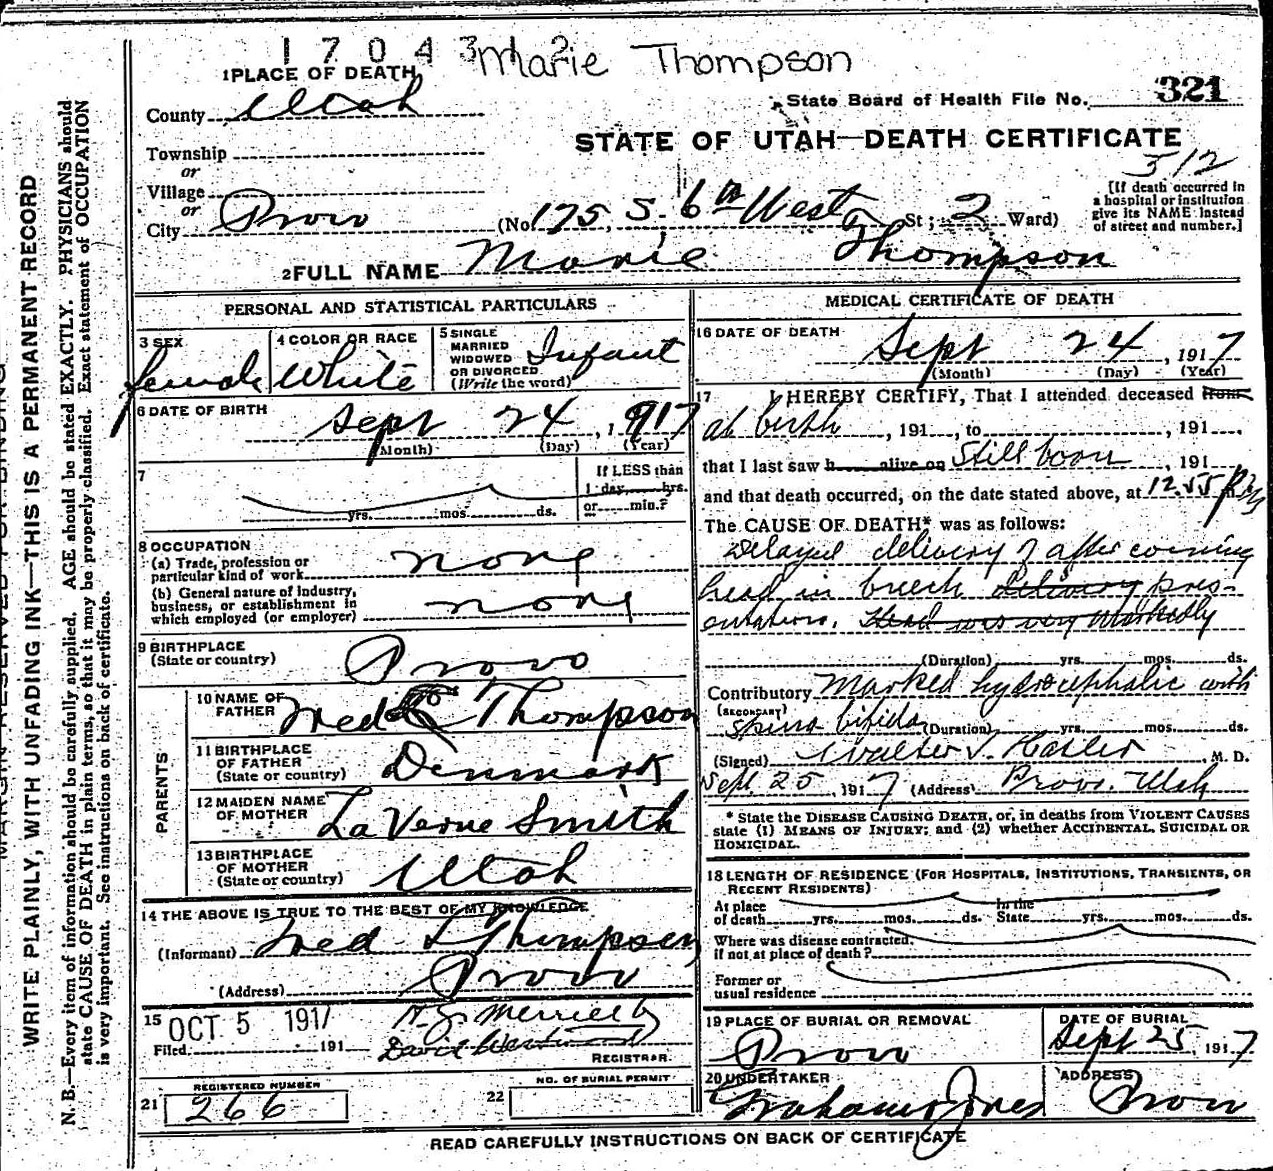 1 7 0 4 3
Marie Thompson
1 PLACE OF DEATH
State Board of Health File No. 321
County Utah
STATE OF UTAH—DEATH CERTIFICATE
Township
or
Village
or
City Provo
(No 175 S. 6th West St; 2 Ward)
512
[If death occurred in
a hospital or institution
give its NAME instead
of street and number.]
2 FULL NAME Marie Thompson
PERSONAL AND STATISTICAL PARTICULARS
3 SEX
female
4 COLOR OR RACE
White
5 SINGLE
MARRIED
WIDOWED
OR DIVORCED
(Write the word)
Infant
6 DATE OF BIRTH
Sept 24, 1917
(Month) (Day) (Year)
7
yrs. mos. ds.
If LESS than
1 day hrs.
or min.?
8 OCCUPATION
(a) Trade, profession or
particular kind of work none
(b) General nature of Industry,
business, or establishment in
which employed (or employer) none
9 BIRTHPLACE
(State or country) Provo
PARENTS
10 NAME OF
FATHER Fred Thompson
11 BIRTHPLACE
OF FATHER
(State or country) Denmark
12 MAIDEN NAME
OF MOTHER La Verne Smith
13 BIRTHPLACE
OF MOTHER
(State or country) Utah
14 THE ABOVE IS TRUE TO THE BEST OF MY KNOWLEDGE
(Informant) Fred Thompson
(Address) Provo
15
Filed OCT 5 1917 191
Merrill by
David
REGISTRAR
REGISTERED NUMBER
21 266
22 NO. OF BURIAL PERMIT
MEDICAL CERTIFICATE OF DEATH
16 DATE OF DEATH
Sept 24, 1917
(Month) (Day) (Year)
17 I HEREBY CERTIFY, That I attended deceased from
at birth, 191, to, 191
that I last saw h alive on Still born, 191
and that death occurred, on the date stated above, at 12.55 Pm
The CAUSE OF DEATH* was as follows:
Delayed delivery of after coming
head in breech delivery pres-
entation. Head was very Markedly
(Duration) yrs. mos. ds.
Contributory Marked hydrocephalic with
(SECONDARY)
spina bifida (Duration) yrs. mos. ds.
(Signed) Walter T. Hasler, M. D.
Sept. 25, 1917 (Address) Provo, Utah
* State the DISEASE CAUSING DEATH, or, in deaths from VIOLENT CAUSES
state (1) MEANS OF INJURY; and (2) whether ACCIDENTAL, SUICIDAL OR
HOMICIDAL.
18 LENGTH OF RESIDENCE (FOR HOSPITALS, INSTITUTIONS, TRANSIENTS, OR
RECENT RESIDENTS)
At place
of death yrs. mos. ds.
In the
State yrs. mos. ds.
Where was disease contracted,
if not at place of death?
Former or
usual residence
19 PLACE OF BURIAL OR REMOVAL
Provo
DATE OF BURIAL
Sept 25, 1917
20 UNDERTAKER
Graham Jones
ADDRESS
Provo
READ CAREFULLY INSTRUCTIONS ON BACK OF CERTIFICATE
WRITE PLAINLY, WITH UNFADING INK—THIS IS A PERMANENT RECORD
N. B.—Every item of information should be carefully supplied. AGE should be stated EXACTLY. PHYSICIANS should
state CAUSE OF DEATH in plain terms, so that it may be properly classified. Exact statement of OCCUPATION
is very important. See instructions on back of certificate.